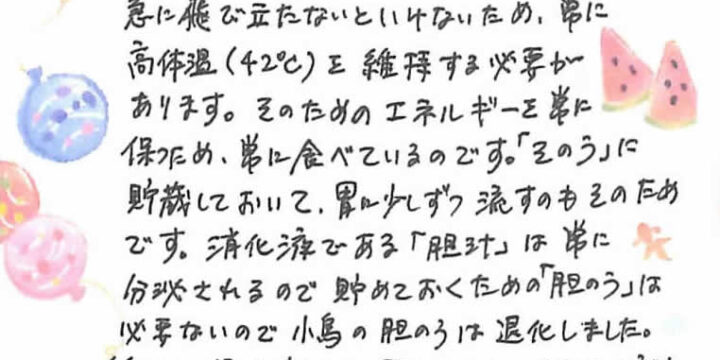 急に飛び立たないといけないため、常に
高体温（42℃）を維持する必要が
あります。そのためのエネルギーを常に
保つため、常に食べているのです。「そのう」に
貯蔵しておいて、胃に少しずつ流すのもそのため
です。消化液である「胆汁」は常に
分泌されるので貯めておくための「胆のう」は
必要ないので小鳥の胆のうは退化しました。